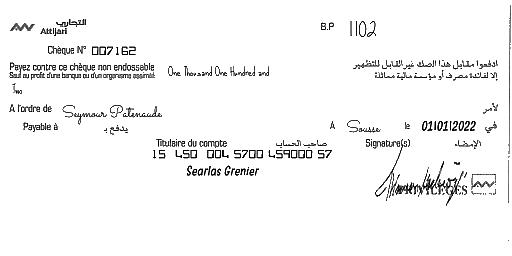 التجاري
Attijari
B.P 1102
Chèque N° 007162
Payez contre ce chèque non endossable
Sauf au profit d'une banque ou d'un organisme assimilé
One Thousand One Hundred and
ادفعوا مقابل هذا الصك غير القابل للتظهير
إلا لفائدة مصرف أو مؤسسة مالية مماثلة
Two
A l'ordre de Seymour Patenaude لأمر
Payable à يدفع بـ A Sousse le 01/01/2022 في
Titulaire du compte صاحب الحساب Signature(s) الإمضاء
15 450 004 5700 459000 57
Searlas Grenier
PRIVILEGES